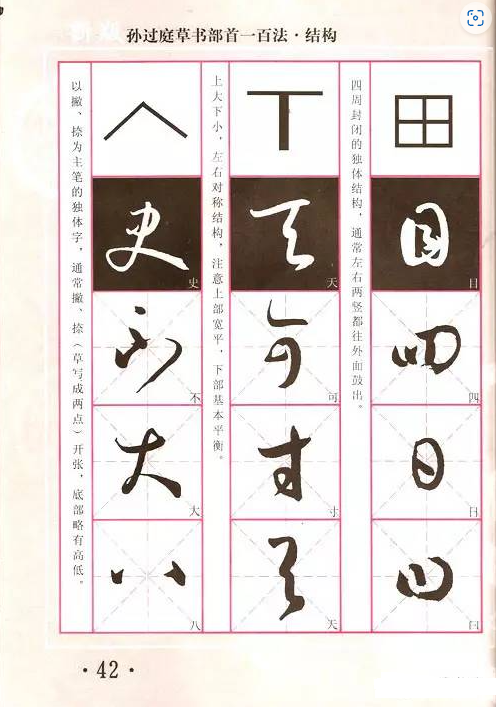 孙过庭草书部首一百法·结构
四周封闭的独体结构，通常左右两竖都往外面鼓出。
目
四
日
曰
上大下小，左右对称结构，注意上部宽平，下部基本平衡。
天
可
寸
天
以撇、捺为主笔的独体字，通常撇、捺（草写成两点）开张，底部略有高低。
史
不
大
八
·42·